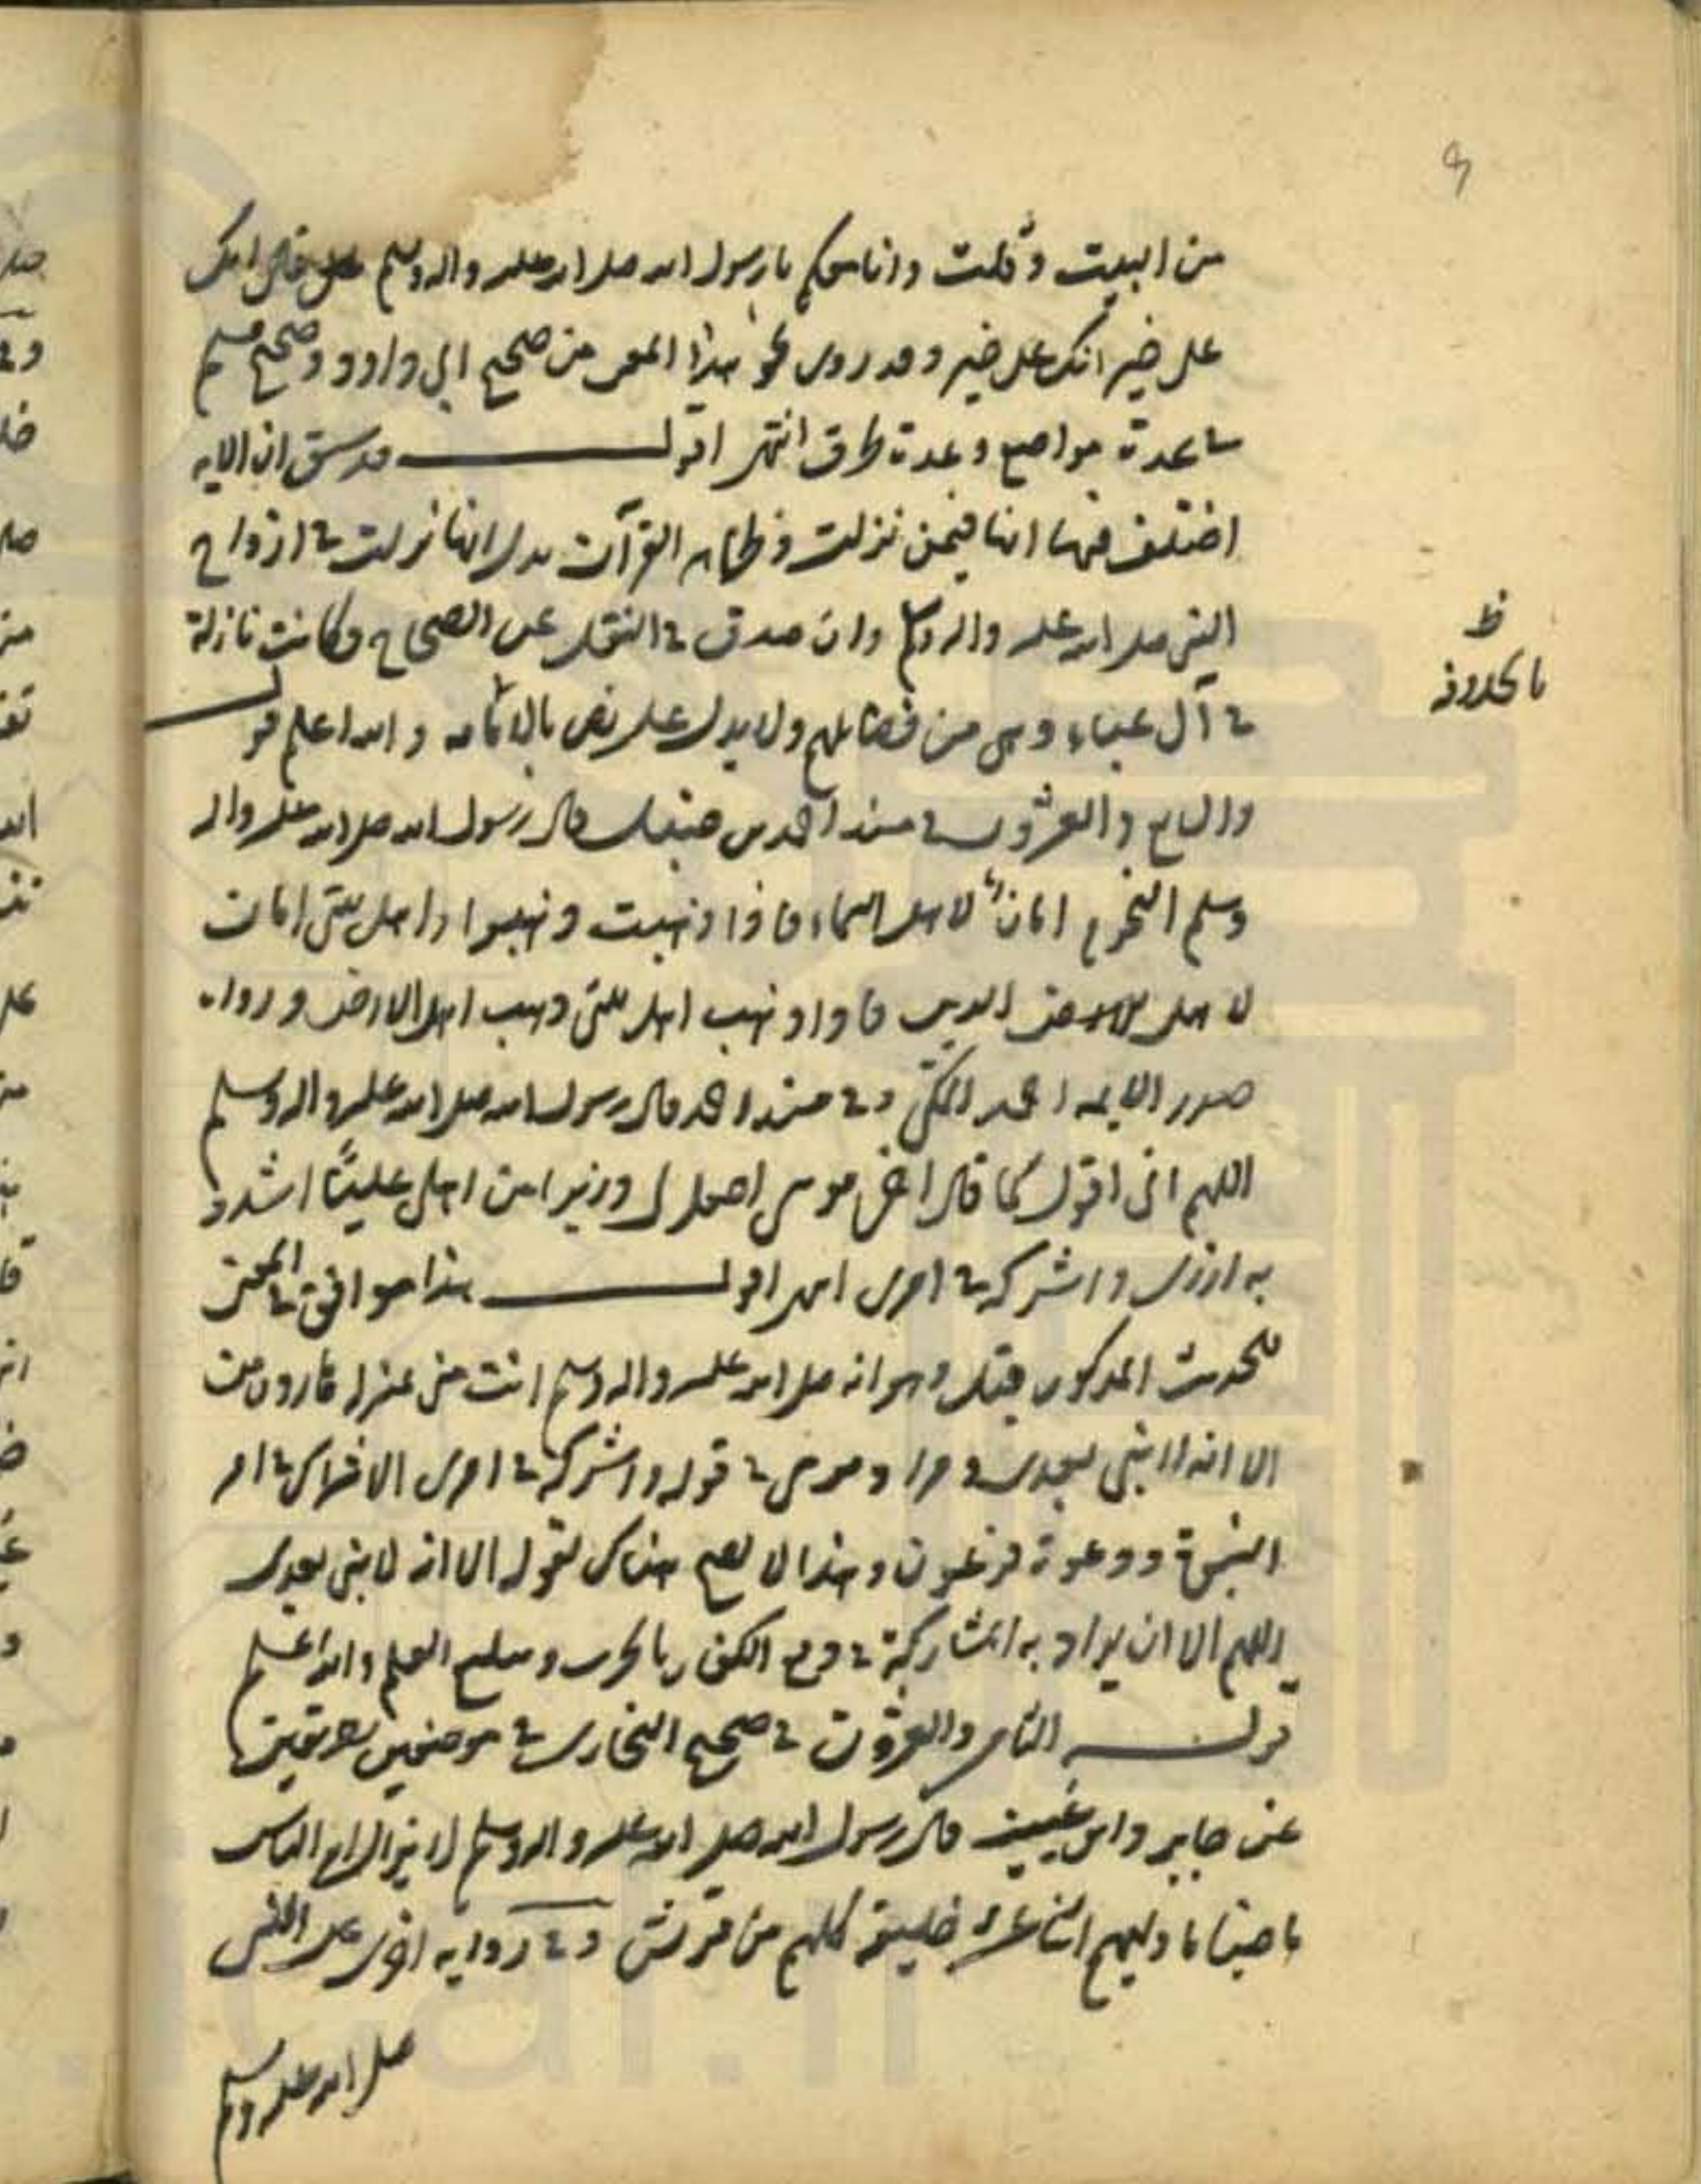 من البيت وقلت وانا معكم يا رسول الله صلى الله عليه واله وسلم قال انك
على خير انك على خير وقد روى نحو هذا المعنى من صحيح ابي داود وصحيح مسلم
في عدة مواضع وعدة طرق انتهى اقول قد سبق ان الاية
اختلف فيها انها فيمن نزلت وظاهر القرآن يدل انها نزلت في ازواج
النبي صلى الله عليه واله وسلم وان صدق في النقل عن الصحاح وكانت نازلة
في آل عباء وهى من فضايلهم ولا يدل على نص بالامامه والله اعلم قوله
والسابع والعشرون في مسند احمد بن حنبل قال رسول الله صلى الله عليه واله
وسلم النجوم امان لاهل السماء فاذا ذهبت ذهبوا واهل بيتى امان
لاهل الارض فاذا ذهب اهل بيتى ذهب اهل الارض ورواه
صدر الايمه المكى وفي مسند احمد قال رسول الله صلى الله عليه واله وسلم
اللهم انى اقول كما قال اخى موسى اجعل لى وزيرا من اهلى عليًا اشدد
به ازرى واشركه في امرى انتهى اقول هذا موافق في المعنى
للحديث المذكور قبل وهو انه صلى الله عليه واله وسلم انت منى بمنزلة هارون من
الا انه لا نبى بعدى ومراد موسى في قوله واشركه في امرى الاشتراك في امر
النبوة ودعوة فرعون وهذا لا يصح هناك لقوله الا انه لا نبى بعدى
اللهم الا ان يراد به المشاركة في دفع الكفار بالحرب وتبليغ العلم والله اعلم
قوله الثامن والعشرون في صحيح البخارى في موضعين بطريقين
عن جابر وابن عيينه قال رسول الله صلى الله عليه واله وسلم لا يزال امر الناس
ماضيا ما وليهم اثنا عشر خليفة كلهم من قريش وفى رواية اخرى عن النبى
صلى الله عليه وسلم
ظ